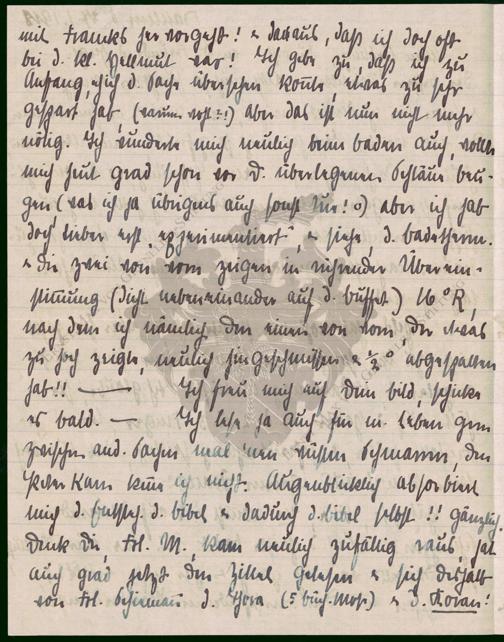 mit Francks hervorgeht! & daraus, daß ich doch oft
bei d. kl. Hellmut war! Ich gebe zu, daß ich zu
Anfang, eh ich d. Sache übersehen konnte, etwas zu sehr
gespart hab, (warum wohl?!) aber das ist nun nicht mehr
nötig. Ich wunderte mich neulich beim baden auch, wollte
mich heut grad schon vor D. überlegenen Schläue beu-
gen (was ich ja übrigens auch sonst tue!) aber ich hab
doch lieber erst „experimentiert", & siehe, d. badetherm.
& die zwei von vorn zeigen in rührender Überein-
stimmung (dicht nebeneinander auf d. Buffet) 16°R,
nach dem ich nämlich den einen von vorn der etwas
zu hoch zeigte, neulich hingeschmissen & ½° abgespalten
hab!! — Ich freu mich auf Dein bild, schicke
es bald. — Ich lese ja auch für m. Leben gern
zwischen and. Sachen mal 'nen süßen Schmarrn, den
Peter Kam kenn ich nicht. Augenblicklich absorbiert
mich d. d. bibel & dadurch d. bibel selbst!! gänzlich.
Denk Dir, Frl. M. kam neulich zufällig raus, sah
auch grad jetzt den Zittel gelesen & sich deshalb
von Frl. d. Thora (5 büch. Mos.) & d. Koran!